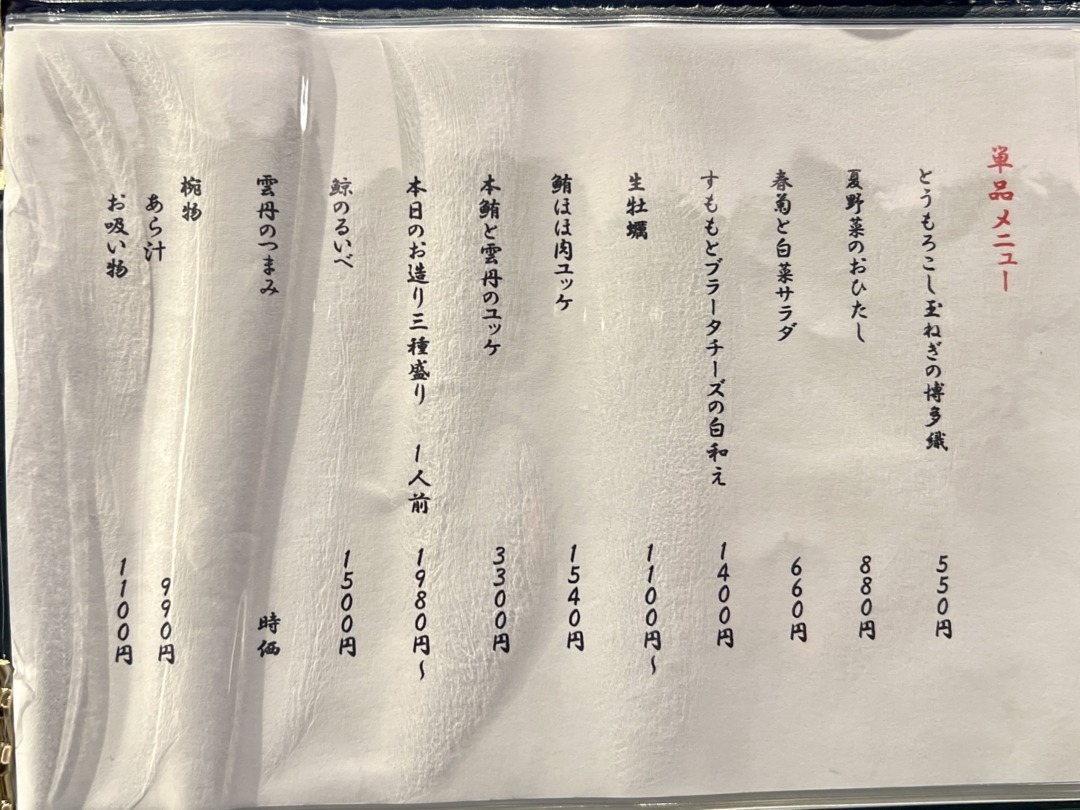 単品メニュー
とうもろこし玉ねぎの博多織 550円
夏野菜のおひたし 880円
春菊と白菜サラダ 660円
すももとブラータチーズの白和え 1400円
生牡蠣 1100円~
鮪ほほ肉ユッケ 1540円
本鮪と雲丹のユッケ 3300円
本日のお造り三種盛り 1人前 1980円~
鯨のるいべ 1500円
雲丹のつまみ 時価
椀物
あら汁 990円
お吸い物 1100円